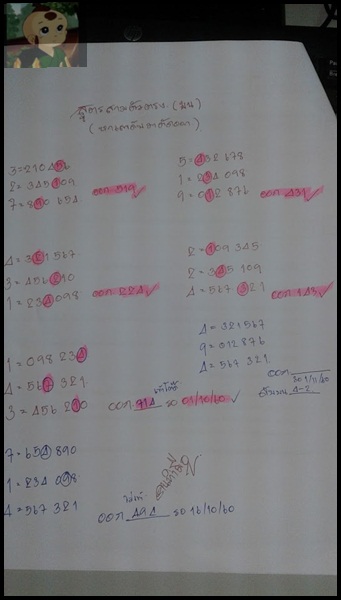 สูตรสามตัวตรง (บน)
3=210456
2=345109
7=890 654
ออก 519
5=432 678
1=234 098
9=012 876
ออก 431
4=321567
3=456210
1=234098
ออก 224
2=109 345
2=345 109
4=567 321
ออก 143
1=098 234
4=567 321
3=456 210
ออก 414 รอ 01/10/60
4=321567
9=012876
4=567 321
ออก
รอ 1/11/60
7=654 890
1=234 098
4=567 321
ออก 494 รอ 16/10/60